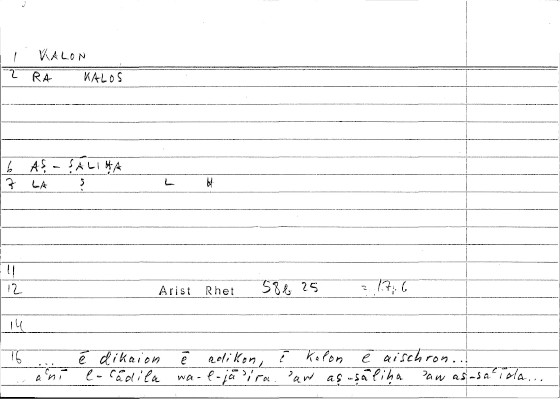 1 KALON
2 RA KALOS
6 AṢ - ṢĀLIḤA
7 LA Ṣ L Ḥ
11
12 Arist Rhet 58b 25 = 17,6
14
16 ... ē dikaion ē adikon, ē kalon ē aischron...
... a'nī l-'ādila wa-l-jā'ira 'aw aṣ-ṣāliḥa 'aw as-sa